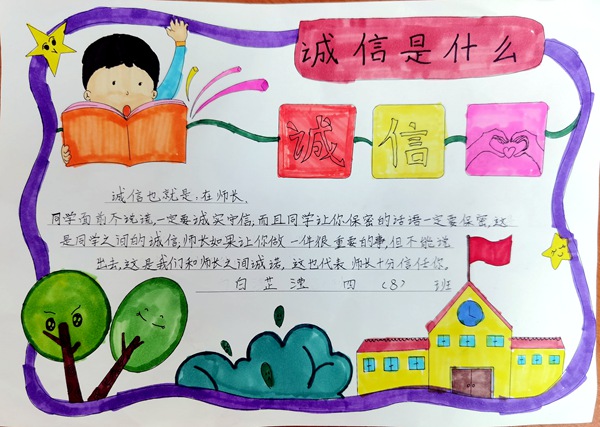 诚信是什么
诚 信
诚信也就是:在师长,
同学面前不说谎,一定要诚实守信,而且同学让你保密的话语一定要保密,这
是同学之间的诚信,师长如果让你做一件很重要的事,但不能说
出去,这是我们和师长之间诚诺,这也代表师长十分信任你,
白芷滢 四(8)班